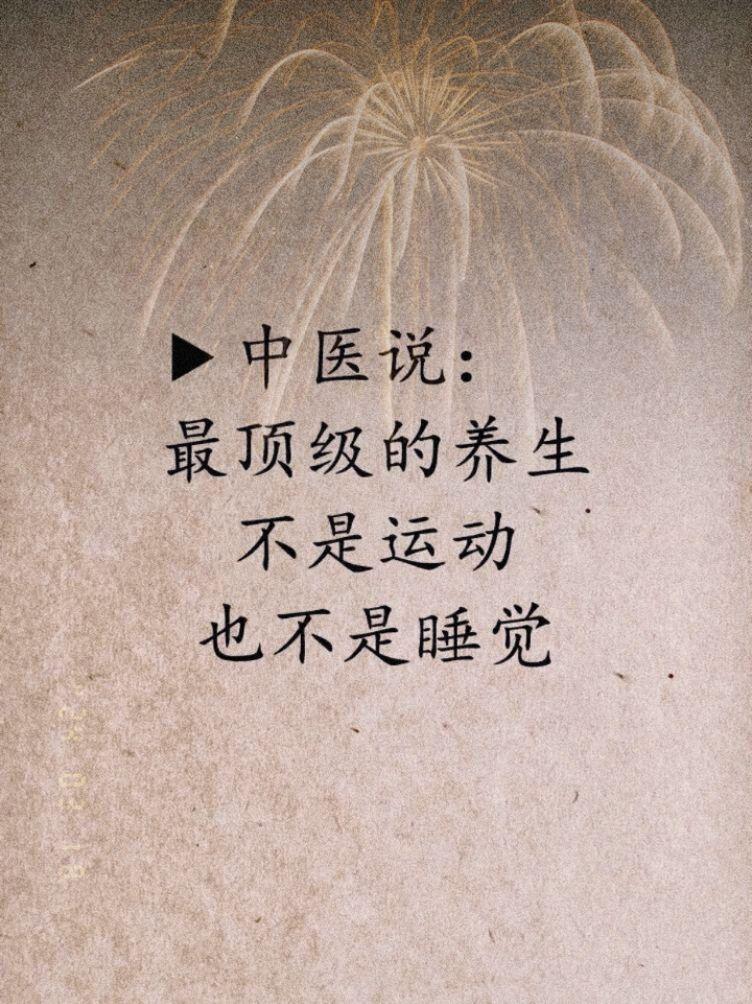 ▶中医说：
最顶级的养生
不是运动
也不是睡觉